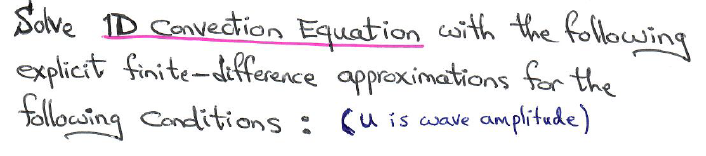 Solve 1D Convection Equation with the following
explicit finite-difference approximations for the
following Conditions : (u is wave amplitude)